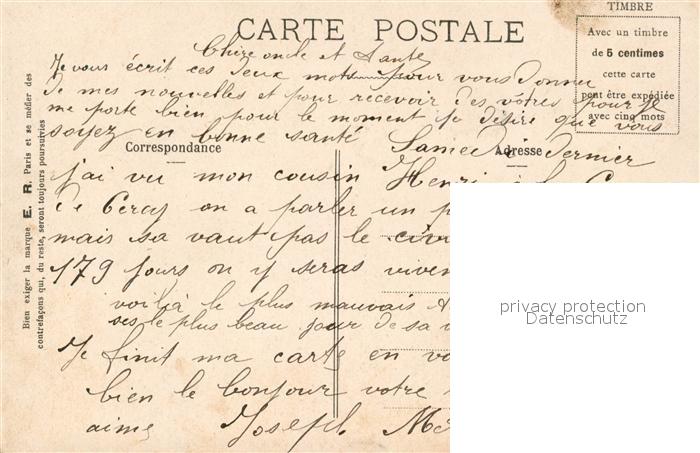 CARTE POSTALE
TIMBRE
Avec un timbre
de 5 centimes
cette carte
peut être expédiée
avec cinq mots
Chère oncle et Tante
Je vous écrit ces deux mots pour vous donner
de mes nouvelles et pour recevoir des vôtres pour je
me porte bien pour le moment je désire que vous
soyez en bonne santé Samedi dernier
Correspondance
Adresse
j'ai vu mon cousin Henri à la
de Cercy on a parler un
mais sa vaut pas le
179 jours on y seras
voilià le plus mauvais
ses le plus beau jour de sa
Je finit ma carte en
bien le bonjour votre
aime Joseph
Bien exiger la marque E. R. Paris et se méfier des
contrefaçons qui, du reste, seront toujours poursuivies
privacy protection
Datenschutz